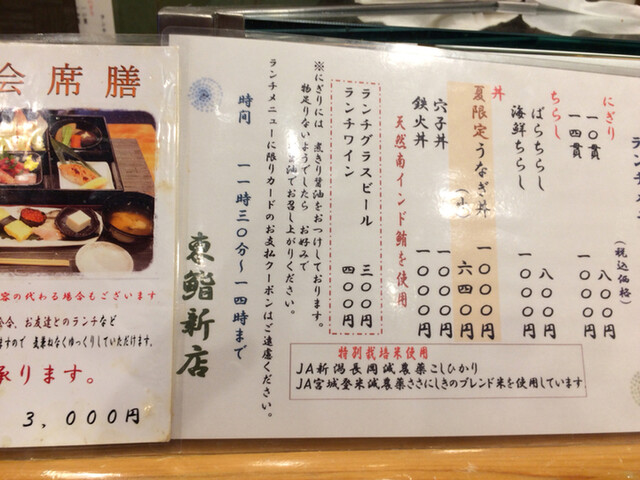 ランチ
(税込価格)
にぎり
一〇貫 八〇〇円
一四貫 一〇〇〇円
ちらし
ばらちらし 八〇〇円
海鮮ちらし 一〇〇〇円
丼
夏限定うなぎ丼 一〇〇〇円
(小) 六四〇円
穴子丼 一〇〇〇円
鉄火丼 一〇〇〇円
天然南インド鮪を使用
ランチグラスビール 三〇〇円
ランチワイン 四〇〇円
※にぎりには、煮きり醤油をおつけしております。
物足りないようでしたら お好みで
油でお召し上がりください。
ランチメニューに限りカードのお支払クーポンはご遠慮ください。
時間 一一時三〇分〜一四時まで
東鮨新店
特別栽培米使用
JA新潟長岡減農薬こしひかり
JA宮城登米減農薬ささにしきのブレンド米を使用しています
会席膳
容の代わる場合もございます
会合、お友達とのランチなど
ますので 気兼ねなくゆっくりしていただけます。
承ります。
3,000円